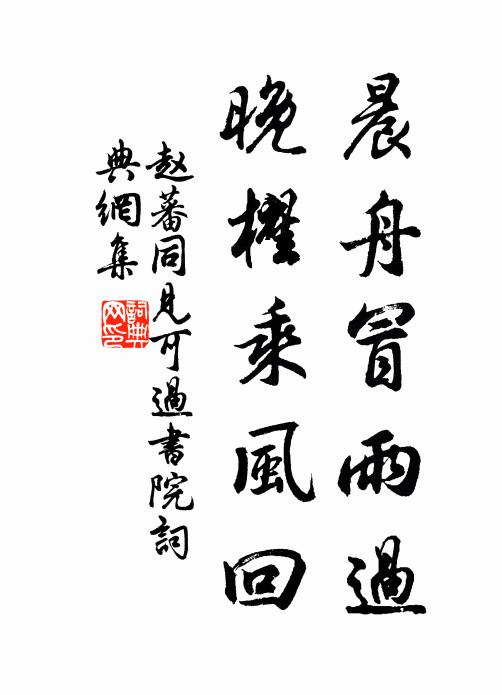 晨舟冒雨過
晚櫂乘風回
赵蕃同見可過書院詞
典網集
詞典網印